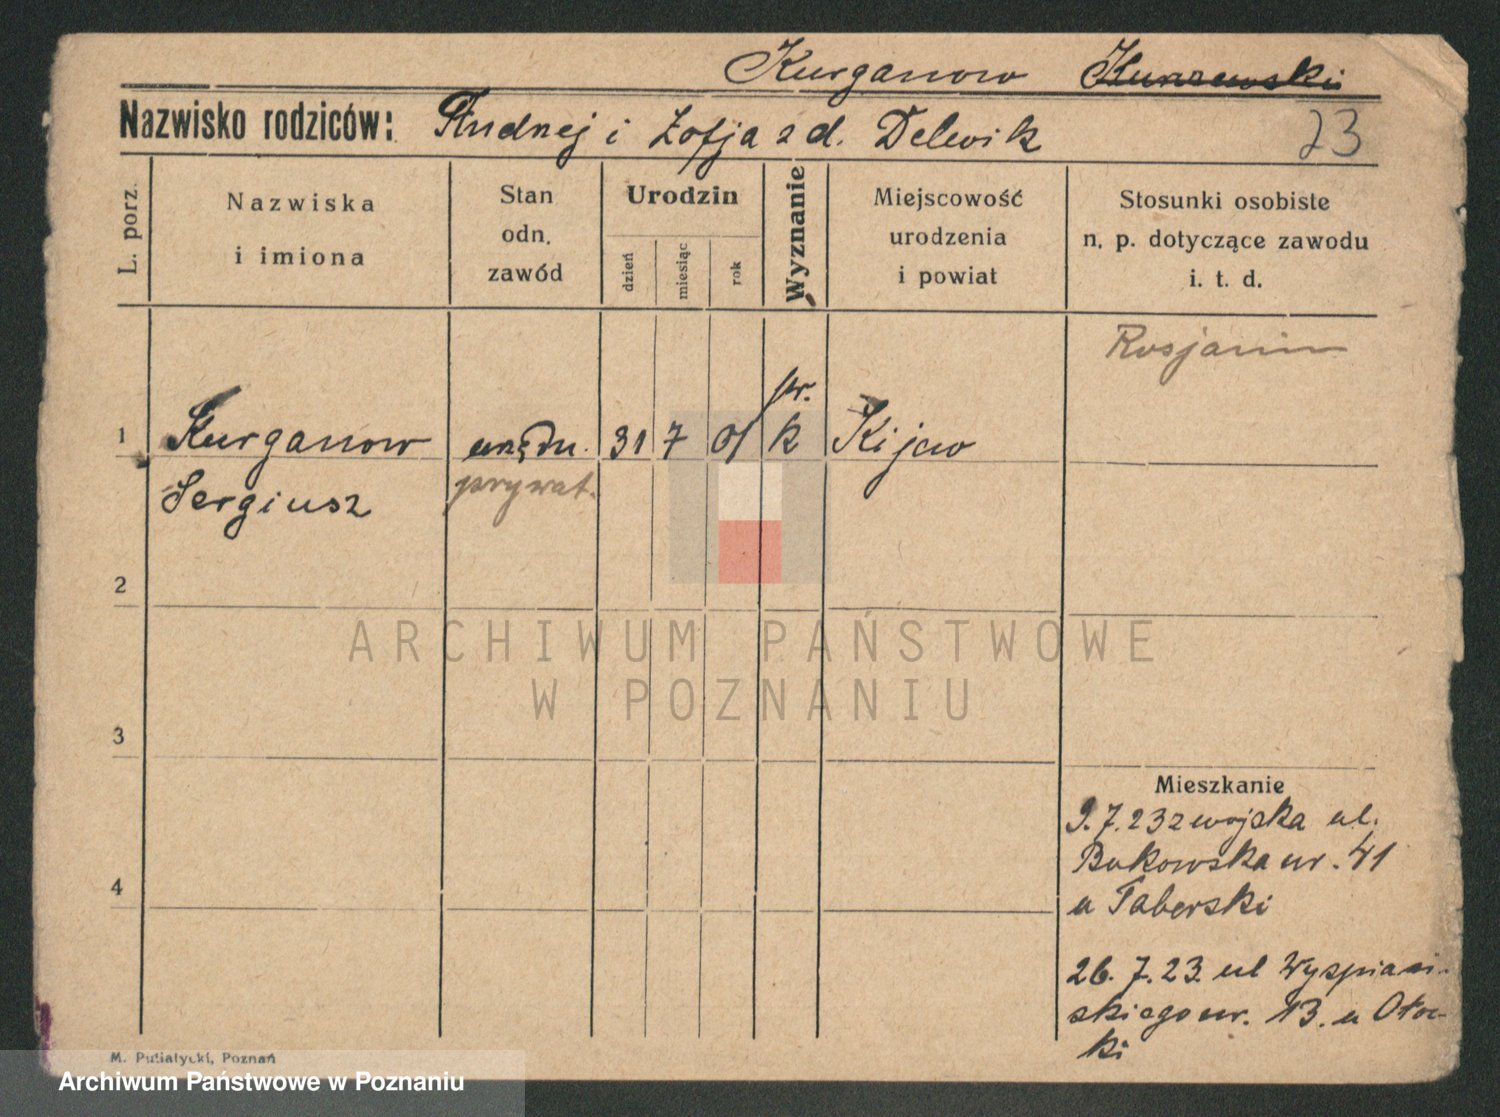 Kurganow Kurzewski
Nazwisko rodziców: Andnej i Zofja z d. Delewik
23
L. porz.
Nazwiska
i imiona
Stan
odn.
zawód
Urodzin
dzień
miesiąc
rok
Wyznanie
Miejscowość
urodzenia
i powiat
Stosunki osobiste
n. p. dotyczące zawodu
i. t. d.
Rosjanin
pr.
1 Kurganow urzędn. 31 7 01 k Kijew
Sergiusz prywat.
2
3
4
Mieszkanie
9.7.23 z wojska ul.
Bukowska nr. 41
u Taberski
26.7.23. ul Wyspiań-
skiego nr. 13. u Oto-
ki
M. Putiatycki, Poznań
ARCHIWUM PAŃSTWOWE
W POZNANIU
Archiwum Państwowe w Poznaniu